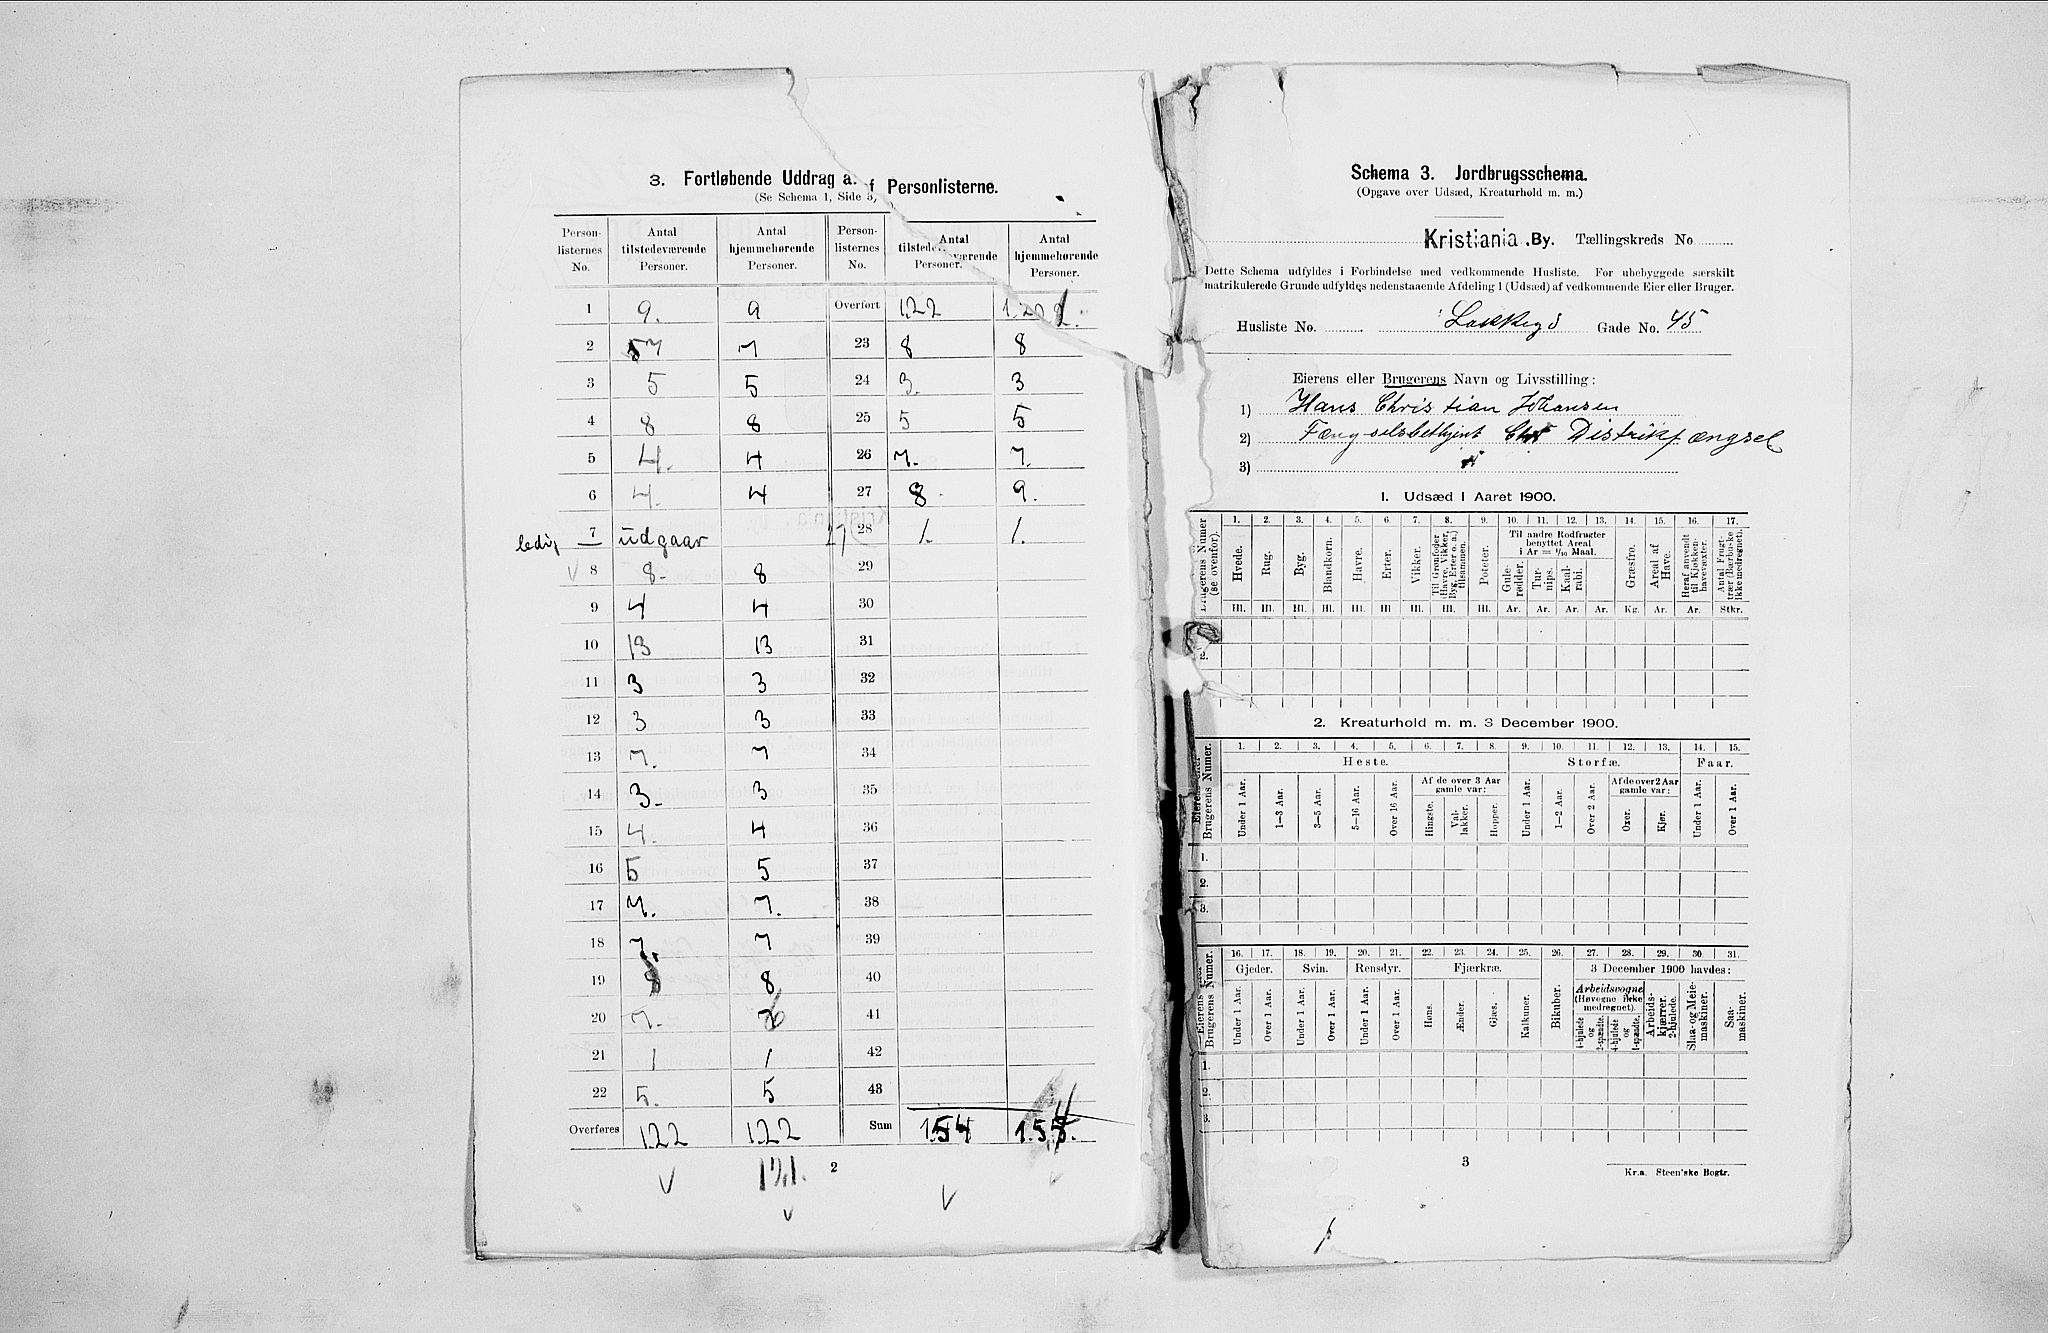 3. Fortløbende Uddrag af Personlisterne.
(Se Schema 1, Side 3)
Person-listernes No. | Antal tilstedeværende Personer. | Antal hjemmehørende Personer. | Person-listernes No. | Antal tilstedeværende Personer. | Antal hjemmehørende Personer.
1 | 9. | 9 | Overført | 122 | 122.
2 | 7 | 7 | 23 | 8 | 8
3 | 5 | 5 | 24 | 3. | 3
4 | 8 | 8 | 25 | 5 | 5
5 | 4. | 4 | 26 | 7. | 7.
6 | 4. | 4 | 27 | 8 | 9.
ledig 7 | udgaar | | 28 | 1. | 1.
8 | 8- | 8 | 29
9 | 4 | 4 | 30
10 | 13 | 13 | 31
11 | 3 | 3 | 32
12 | 3 | 3 | 33
13 | 7. | 7 | 34
14 | 3. | 3 | 35
15 | 4. | 4 | 36
16 | 5 | 5 | 37
17 | 7. | 7. | 38
18 | 7. | 7 | 39
19 | 8 | 8 | 40
20 | 7. | | 41
21 | 1 | 1 | 42
22 | 5. | 5 | 43
Overføres | 122 | 122 | Sum | 154 |
121.
2
Schema 3. Jordbrugsschema.
(Opgave over Udsæd, Kreaturhold m. m.)
Kristiania By. Tællingskreds No
Dette Schema udfyldes i Forbindelse med vedkommende Husliste. For ubebyggede særskilt
matrikulerede Grunde udfyldes nedenstaaende Afdeling 1 (Udsæd) af vedkommende Eier eller Bruger.
Husliste No. Lakkegd Gade No. 45
Eierens eller Brugerens Navn og Livsstilling:
1) Hans Christian Johansen
2) Fængselsbetkjent Distriktfængsel
3)
1. Udsæd i Aaret 1900.
Brugerens Numer (se ovenfor).
1. 2. 3. 4. 5. 6. 7. 8. 9. 10. 11. 12. 13. 14. 15. 16. 17.
Til andre Rodfrugter benyttet Areal i Ar = 1/10 Maal.
Hvede. | Rug. | Byg. | Blandkorn. | Havre. | Erter. | Vikker. | Til Grønfoder (Havre, Vikker, Byg, Erter o. a.) tilsammen. | Poteter. | Gule-rødder. | Tur-nips. | Kaal-rabi. | | Græsfrø. | Areal af Have. | Heraf anvendt til Kjøkken-havevæxter. | Antal Frugt-trær (Bærbuske ikke medregnet).
Hl. Hl. Hl. Hl. Hl. Hl. Hl. Hl. Hl. Ar. Ar. Ar. Ar. Kg. Ar. Ar. Stkr.
2.
2. Kreaturhold m. m. 3 December 1900.
Eierens eller Brugerens Numer.
1. 2. 3. 4. 5. 6. 7. 8. 9. 10. 11. 12. 13. 14. 15.
Heste. Storfæ. Faar.
Af de over 3 Aar gamle var: Af de over 2 Aar gamle var:
Under 1 Aar. | 1—3 Aar. | 3—5 Aar. | 5—16 Aar. | Over 16 Aar. | Hingste. | Val-lakker. | Hopper. | Under 1 Aar. | 1—2 Aar. | Over 2 Aar. | Oxer. | Kjør. | Under 1 Aar. | Over 1 Aar.
1.
2.
3.
Eierens eller Brugerens Numer.
16. 17. 18. 19. 20. 21. 22. 23. 24. 25. 26. 27. 28. 29. 30. 31.
Gjeder. Svin. Rensdyr. Fjærkræ. 3 December 1900 havdes:
Arbeidsvogne (Høvogne ikke medregnet).
Under 1 Aar. | Over 1 Aar. | Under 1 Aar. | Over 1 Aar. | Under 1 Aar. | Over 1 Aar. | Høns. | Ænder. | Gjæs. | Kalkuner. | Bikuber. | 4-hjulede og 2-spændte. | 4-hjulede og 1-spændte. | Arbeids-kjærrer, 2-hjulede. | Slaa- og Meie-maskiner. | Saa-maskiner.
1.
2.
3.
3
Kr.a. Steen'ske Bogtr.